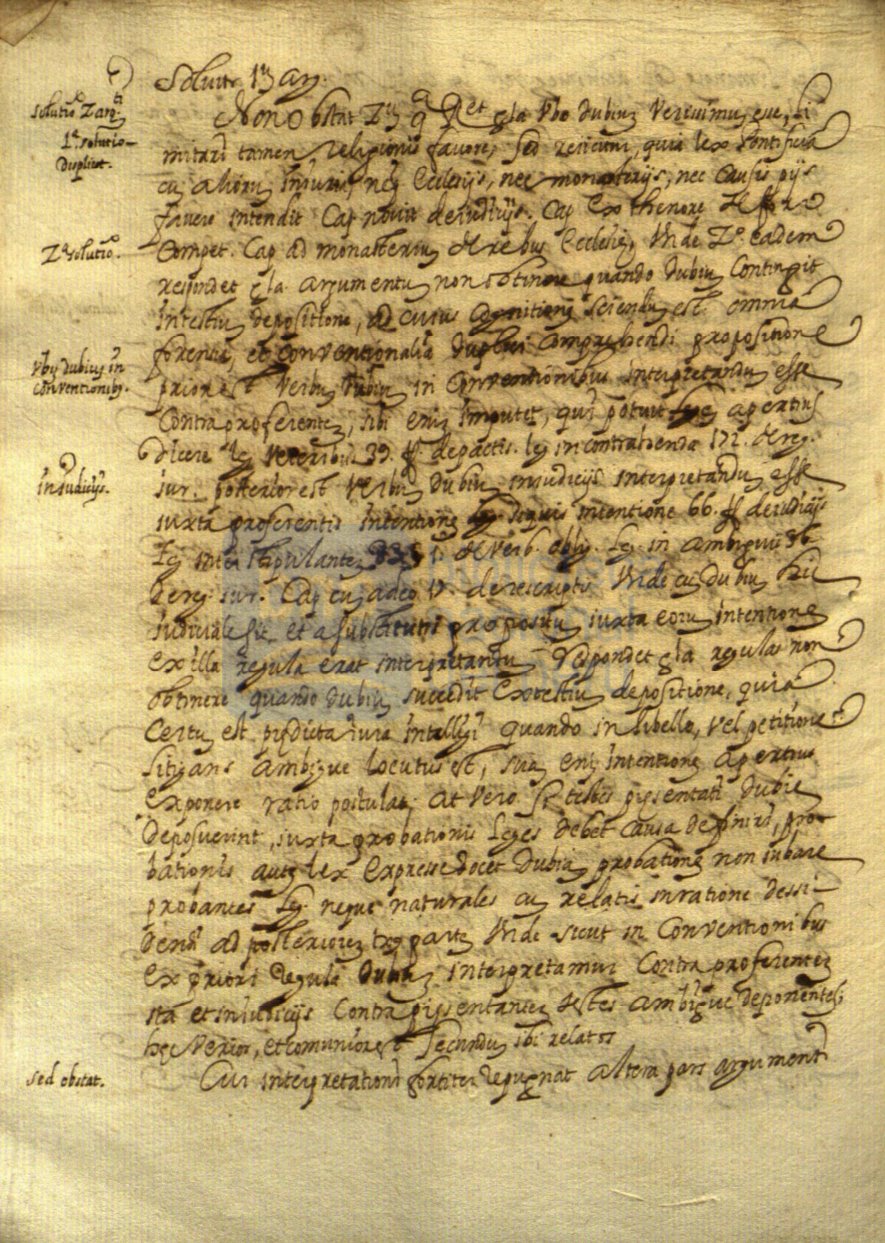 Solvitr 1m arg.
solutio 2 arti
Non obstat 2m q Ret gla vbo dubium verissimum esse, li
1a solutio
duplicat.
mitari tamen religionis favore, sed reiicitur, quia lex Pontificia
cum aliorum iniuria neq Ecclesijs, nec monasterijs, nec causis pijs
favere intendit Cap novit de iudicijs. Cap Ex thenore de foro
2a solutio.
Compet. Cap ad monasterium de rebus Ecclesie, Unde 2o eadem
respondet gla argumentum non obtinere quando dubium contingit
in testium depositione, ad cuius cognitionem sciendum est omnia
forensia, et conventionalia duplici comprehendi propositione
vbum dubium in
conventionibus.
prior est verbum dubium in conventionibus interpretandum esse
contra proferentem, sibi enim imputet, qui potuit legem apertius
dicere leg veteribus 39. ff. de pactis. leg in contrahenda 172. de reg.
in iudicijs.
iur. posterior est verbum dubium in iudicijs interpretandum esse
iuxta proferentis intentionem leg si quis intentione 66. ff de iudicijs
leg inter stipulantem 83 § 1. de verb. oblig. leg. in ambiguis 96
de reg. iur. Cap cum adeo 17. de rescriptis Unde cum dubium hic
iudiciale sit et a substitutis propositum iuxta eorum intentionem
ex illa regula erat interpretandum, Respondet gla regulas non
obtinere quando dubium succedit ex testium depositione, quia
certum est, predicta iura intelligi quando in libello, vel petitione
litigans ambigue locutus est, suam enim intentionem apertius
exponere ratio postulat, at vero si testes presentati dubie
deposuerint, iuxta probationis leges debet causa definiri, pro
bationis autem lex expresse docet dubiam probationem non iubare
probantes leg neque naturales cum relatis in ratione dessi
dendi ad posteriorem text partem Unde sicut in conventionibus
ex priori regula dubium interpretamur contra proferentem
ita et in iudicijs contra presentantem testes ambigue deponentes,
hec verior, et comunior est secundum ibi relatos
sed obstat.
Cui interpretationi fortiter repugnat altera pars argumenti